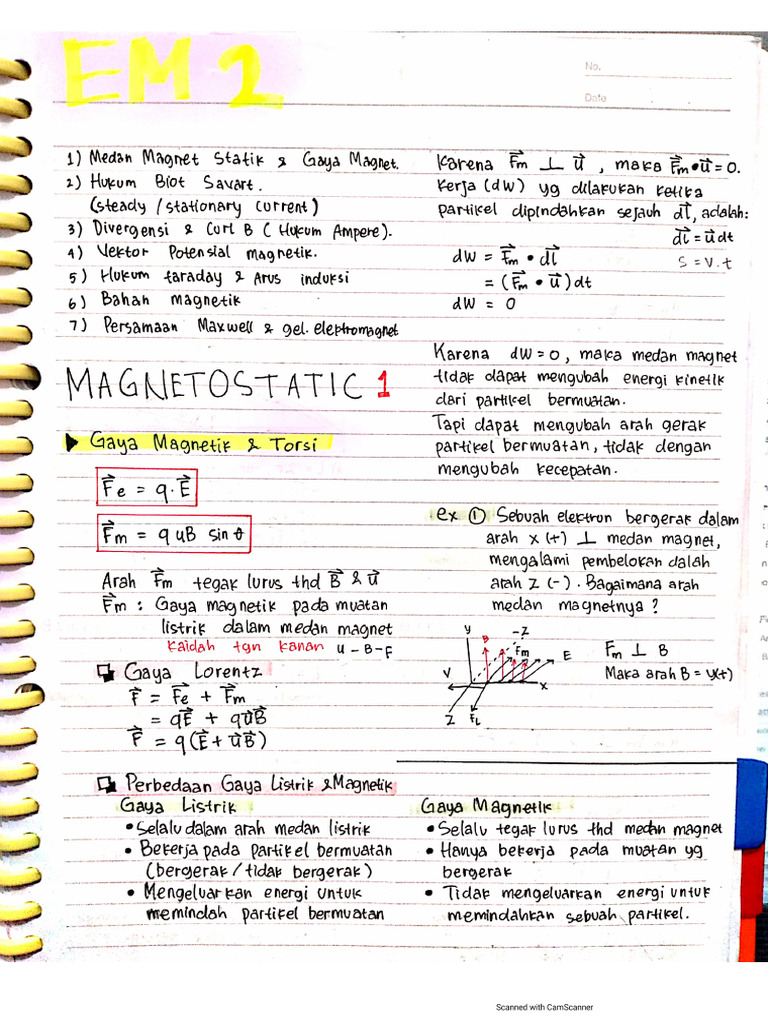 EM 2
No.
Date
1) Medan Magnet Statik & Gaya Magnet.
2) Hukum Biot Savart.
(steady / stationary current)
3) Divergensi & Curl B ( Hukum Ampere).
4) Vektor Potensial magnetik.
5) Hukum faraday & Arus induksi
6) Bahan magnetik
7) Persamaan Maxwell & gel. elektromagnet
MAGNETOSTATIC 1
▶ Gaya Magnetik & Torsi
F⃗e = q·E⃗
F⃗m = q uB sin θ
Arah F⃗m tegak lurus thd B⃗ & u⃗
F⃗m : Gaya magnetik pada muatan
listrik dalam medan magnet
kaidah tgn kanan u - B - F
❑ Gaya Lorentz
F⃗ = F⃗e + F⃗m
= qE⃗ + qu⃗B⃗
F⃗ = q(E⃗ + u⃗B⃗)
Karena F⃗m ⊥ u⃗, maka F⃗m • u⃗ = 0.
Kerja (dW) yg dilakukan ketika
partikel dipindahkan sejauh dl⃗, adalah:
dl⃗ = u⃗ dt
s = v.t
dW = F⃗m • dl⃗
= (F⃗m • u⃗) dt
dW = 0
Karena dW = 0, maka medan magnet
tidak dapat mengubah energi kinetik
dari partikel bermuatan.
Tapi dapat mengubah arah gerak
partikel bermuatan, tidak dengan
mengubah kecepatan.
ex ① Sebuah elektron bergerak dalam
arah x (+) ⊥ medan magnet,
mengalami pembelokan dalah
arah z (-). Bagaimana arah
medan magnetnya ?
y B -Z
Fm E
V X
Z FL
Fm ⊥ B
Maka arah B = y(+)
❑ Perbedaan Gaya Listrik & Magnetik
Gaya Listrik
• Selalu dalam arah medan listrik
• Bekerja pada partikel bermuatan
(bergerak / tidak bergerak)
• Mengeluarkan energi untuk
memindah partikel bermuatan
Gaya Magnetik
• Selalu tegak lurus thd medan magnet
• Hanya bekerja pada muatan yg
bergerak
• Tidak mengeluarkan energi untuk
memindahkan sebuah partikel.
Scanned with CamScanner